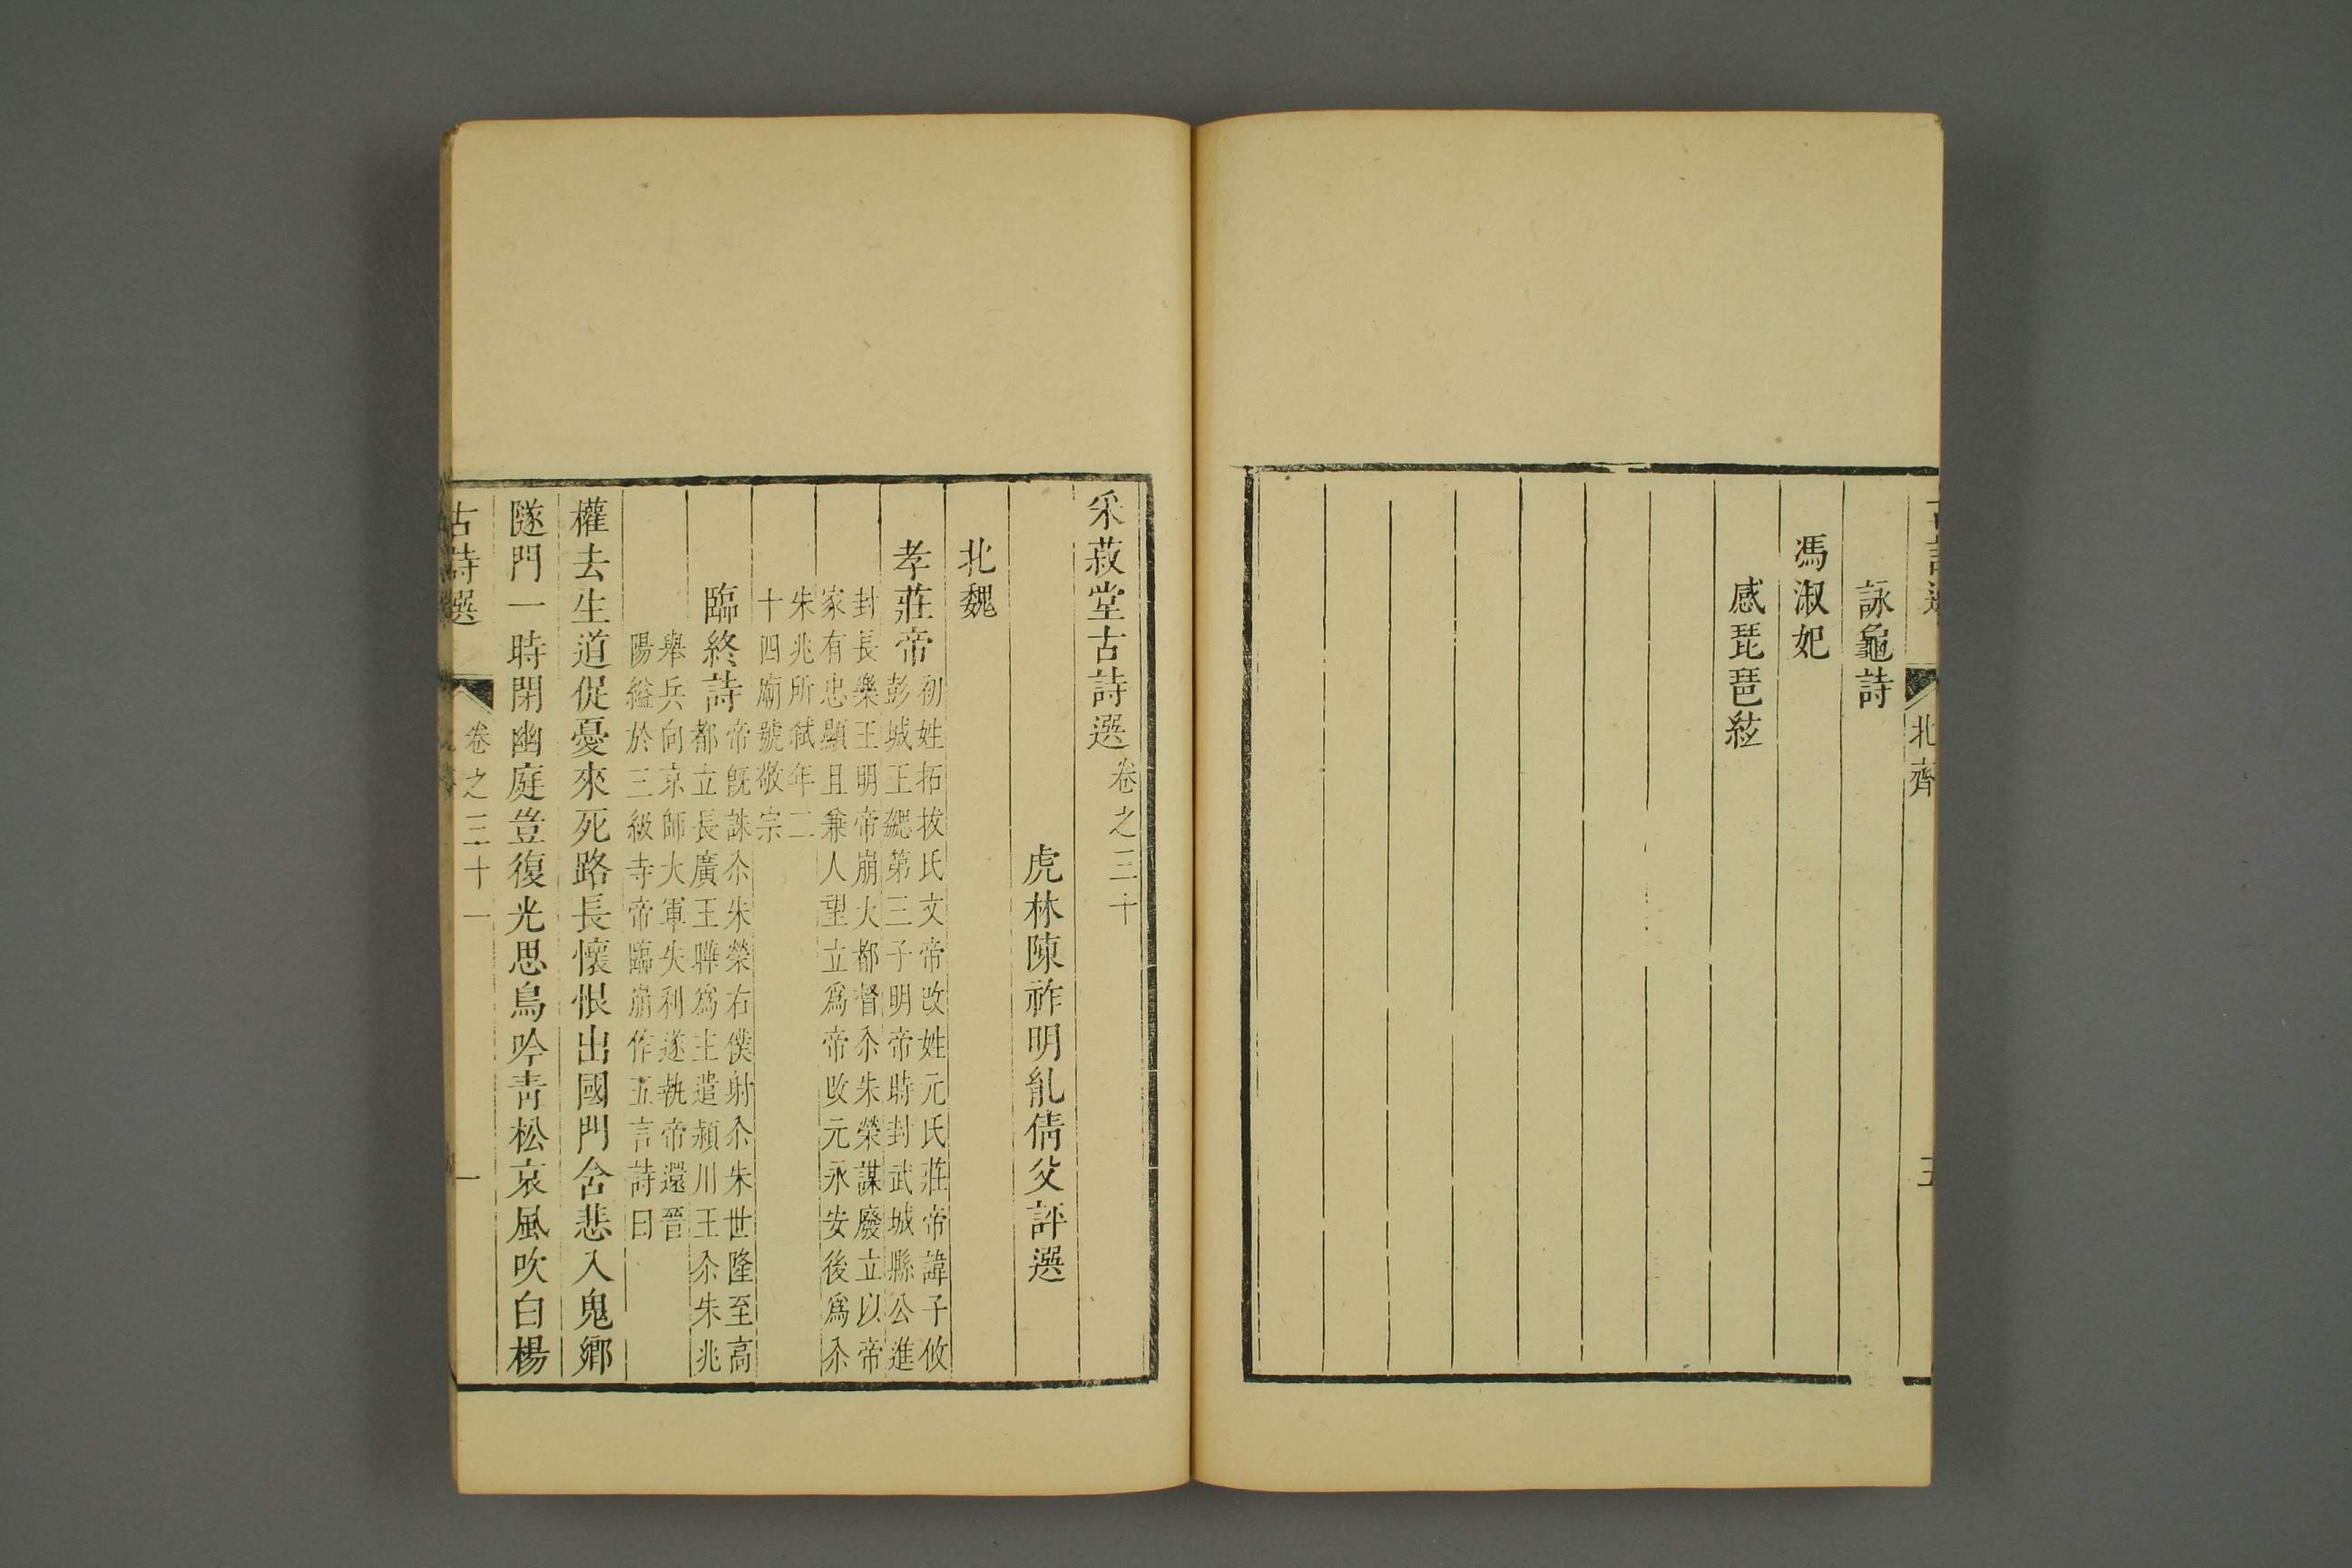 北齊
詠龜詩
馮淑妃
感琵琶絃
采菽堂古詩選卷之三十
虎林陳祚明胤倩父評選
北魏
孝莊帝初姓拓拔氏文帝改姓元氏莊帝諱子攸
彭城王勰第三子明帝時封武城縣公進
封長樂王明帝崩大都督尒朱榮謀廢立以帝
家有忠顯且兼人望立爲帝改元永安後爲尒
朱兆所弑年二
十四廟號敬宗
臨終詩帝旣誅尒朱榮右僕射尒朱世隆至高
都立長廣王曄爲主遣潁川王尒朱兆
舉兵向京師大軍失利遂執帝還晉
陽縊於三級寺帝臨崩作五言詩曰
權去生道促憂來死路長懷恨出國門含悲入鬼鄉
隧門一時閉幽庭豈復光思鳥吟青松哀風吹白楊
古詩選 卷之三十一 一